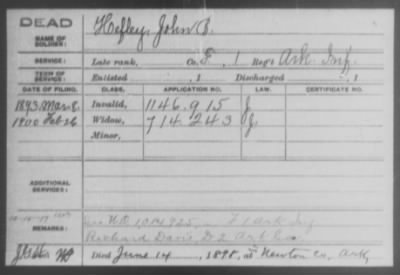 DEAD
NAME OF SOLDIER: Hefley, John B.
SERVICE: Late rank, Co. F, 1 Reg't Ark. Inf.
TERM OF SERVICE: Enlisted , 1 Discharged , 1
DATE OF FILING. CLASS. APPLICATION NO. LAW. CERTIFICATE NO.
1893 Mar 8 Invalid, 1146.915
1900 Feb 26 Widow, 714243
Minor,
ADDITIONAL SERVICES:
REMARKS:
1014925, F 1 Ark Inf
Richard Davis, D 2 Ark
Died June 14, 1898, at Newton Co, Ark,